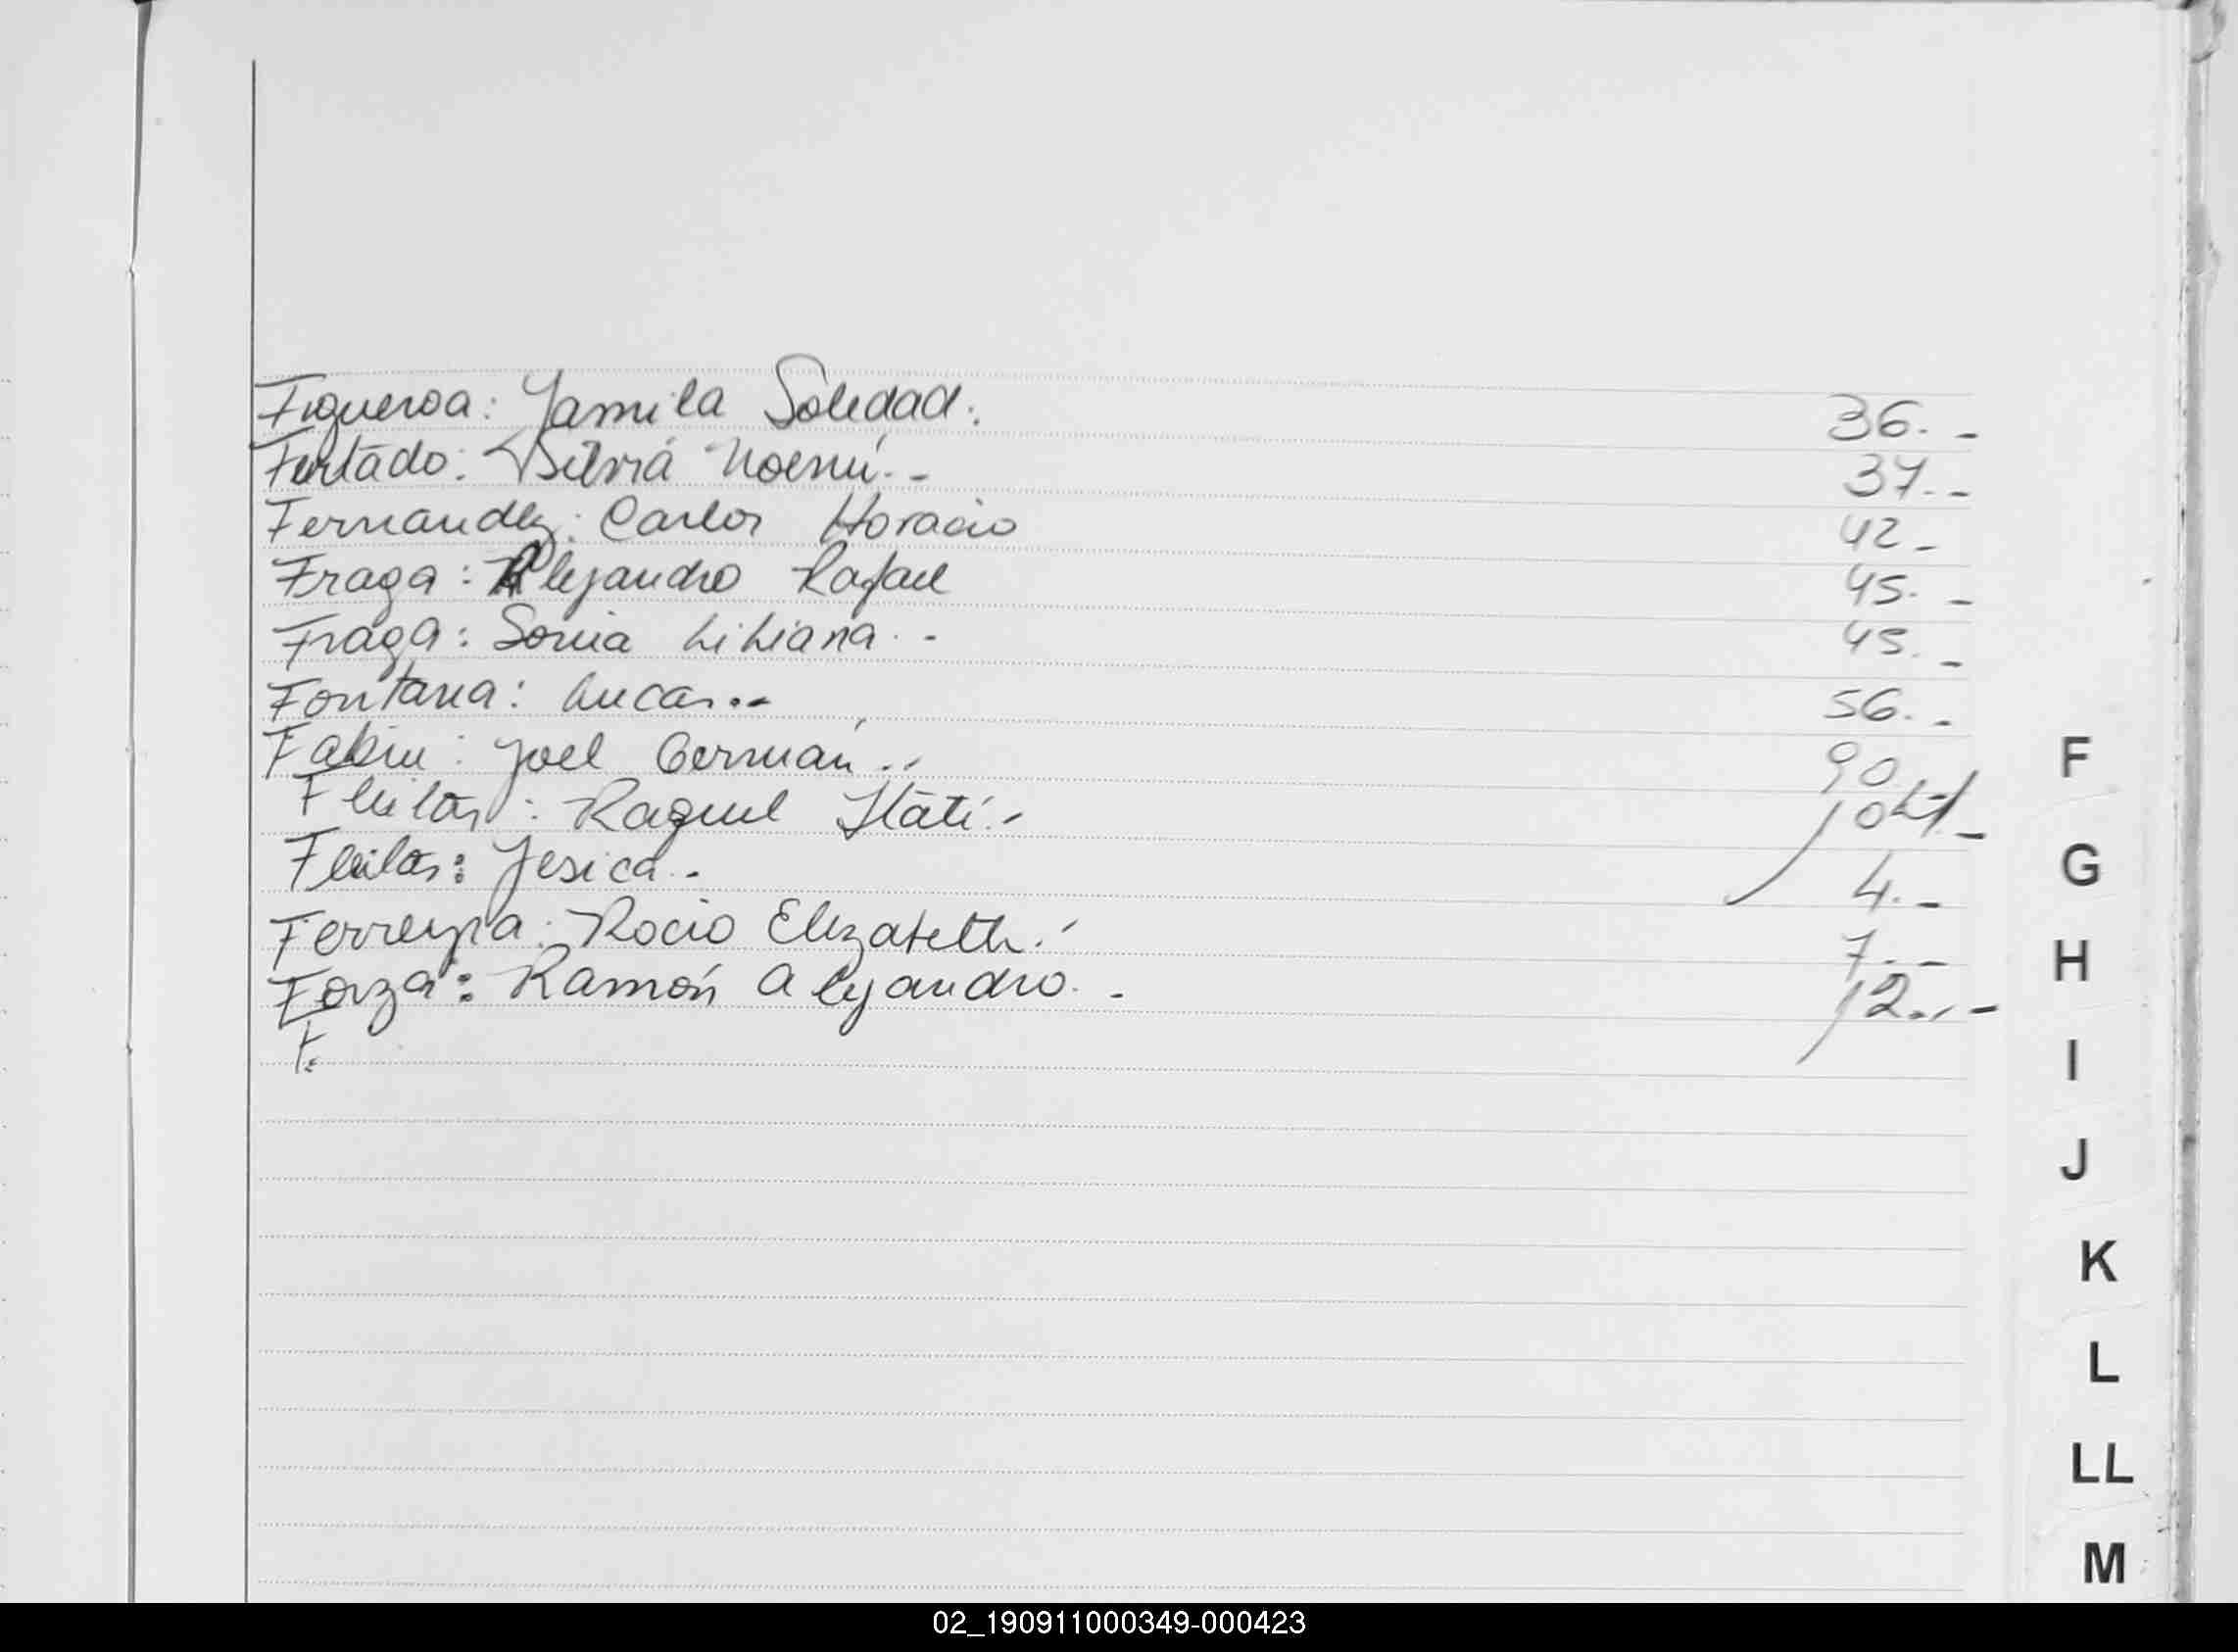 Figueroa: Yamila Soledad. 36.-
Furtado: Silvia Noemí.- 37.-
Fernandez: Carlos Horacio 42-
Fraga: Alejandro Rafael 45.-
Fraga: Sonia Liliana.- 45.-
Fontana: Lucas.- 56.-
Joel Germán.- 90.-
Fleitas: Raquel Itatí.- 104.-
Fleitas: Jesica.- 4.-
Ferreyra: Rocio Elizabeth.- 7.-
Forza: Ramón Alejandro.- 12.-
F.
F
G
H
I
J
K
L
LL
M
02_190911000349-000423